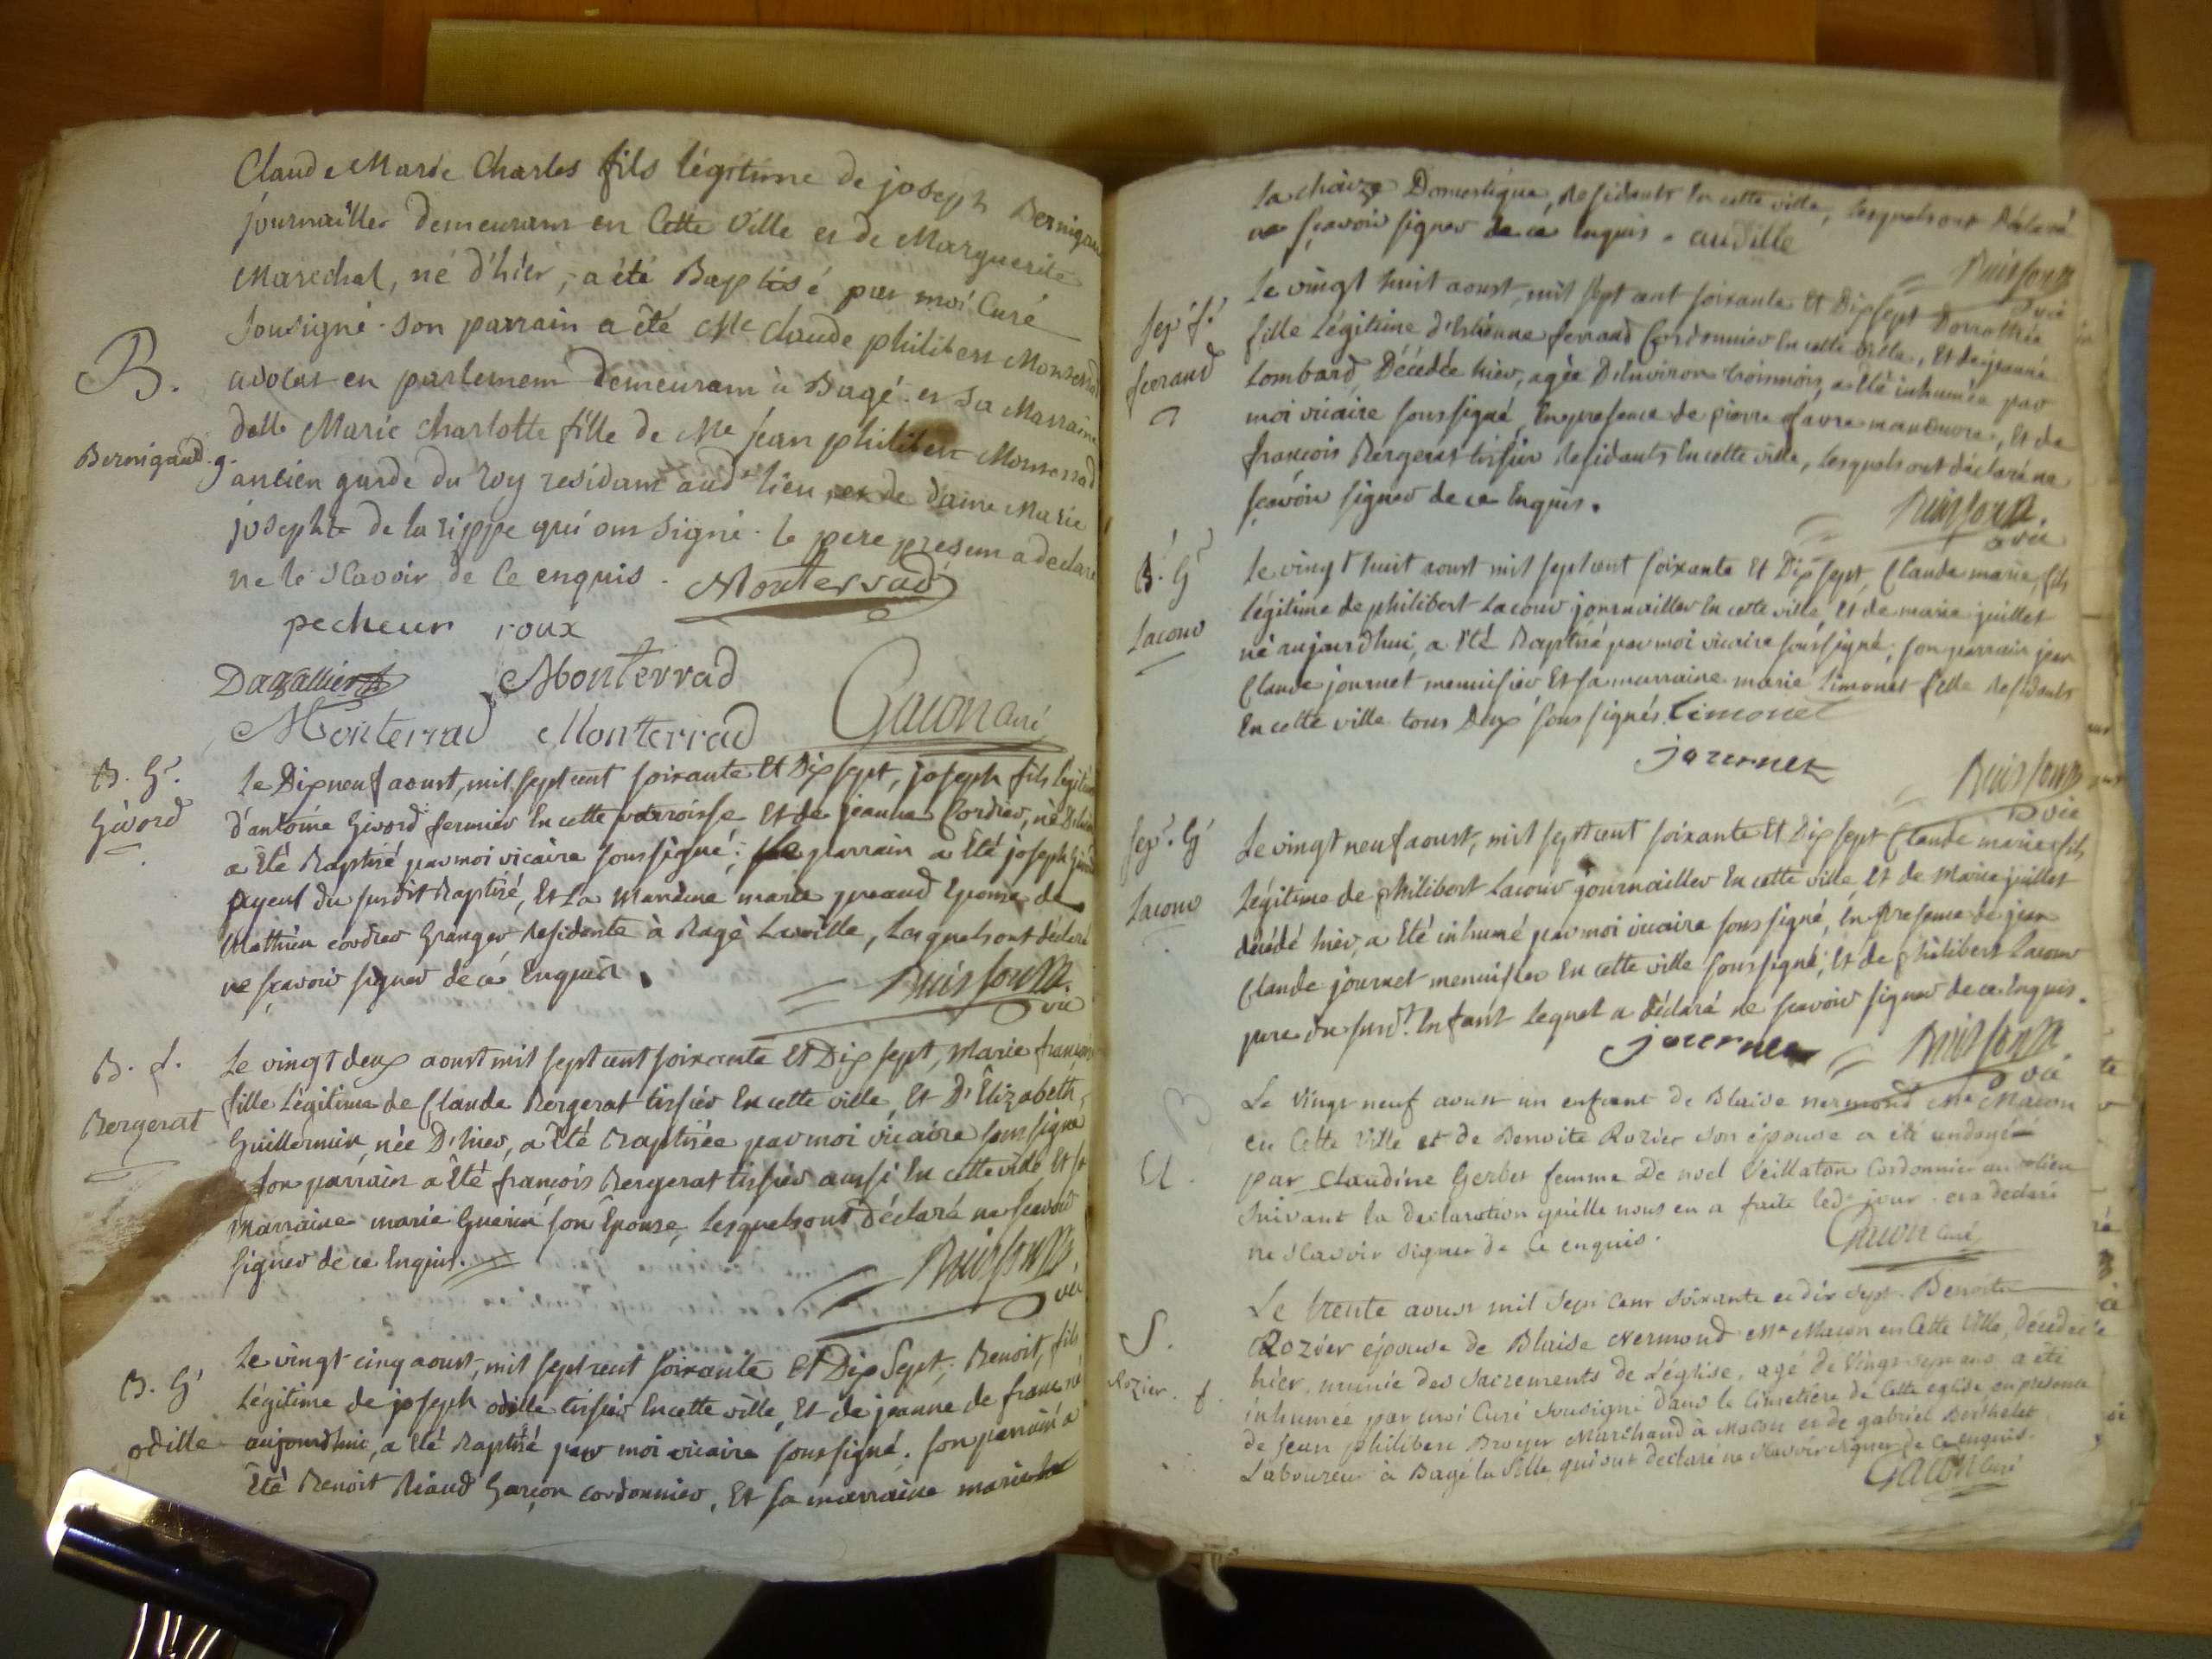 Claude Marie Charles fils légitime de joseph Bernigau
journaillier demeurant en Cette Ville et de Marguerite
Marechal, né d'hier, a été Baptisé par moi Curé
Sousigné. Son parrain a été Me Claude philibert Monterrad
B.
avocat en parlement demeurant à Bagé et Sa Marraine
delle Marie Charlotte fille de Me jean philibert Monterrad
Bernigaud. g.
ancien garde du roy residant aud. lieu et de dame Marie
josephte de la rippe qui ont signé. le pere present a declaré
ne le scavoir de ce enquis. Monterrad
pecheur roux
Dagallier Monterrad
Monterrad Monterrad Gacon Curé
B. G.
Givord
Le Dixneuf aoust, mil sept cent soixante Et Dix sept, joseph fils légitim
d'antoine Givord fermier En cette parroisse Et de jeanne Cordier, né D'hier
a Eté Baptisé par moi vicaire soussigné; parrain a Eté joseph Givord
ayeul du susdit Baptisé, Et La Maraine marie Epouse de
Mathieu cordier Granger Residente à Bagé Laville, Lesquels ont déclaré
ne sçavoir signer de ce Enquis.
Buisson
vic
B. f.
Bergerat
Le vingt deux aoust mil sept cent soixante Et Dix sept, Marie françoise
fille Légitime de Claude Bergerat tissier En cette ville, Et D'Elizabeth
Guillermin, née D'hier, a Eté Baptisée par moi vicaire soussigné
son parrain a Eté françois Bergerat tissier aussi En cette ville Et sa
Marraine marie Guerin son Epouse, Lesquels ont Déclaré ne sçavoir
signer de ce Enquis.
vic
B. G.
odille
Le vingt cinq aoust, mil sept cent soixante Et Dix Sept, Benoit, fils
Légitime de joseph odille tissier En cette ville, Et de jeanne de franc né
aujourdhui, a Eté Baptisé par moi vicaire soussigné. son parrain a
Eté Benoit Riaud Garçon cordonnier, Et sa marraine marie la
la chaize Domestique, Residants En cette ville, Lesquels ont Déclaré
ne sçavoir signer de ce Enquis. audille
vic
Sep. f.
feraud
Le vingt huit aoust, mil sept cent soixante Et Dix sept Dorothée
fille Légitime d'Etienne ferraud Cordonnier En cette ville, Et de jeanne
Lombard, Décédée hier, agée D'Environ trois mois, a Eté inhumée par
moi vicaire soussigné, En presence de pierre favre manœuvre, Et de
françois Bergerat tissier Residants En cette ville, Lesquels ont déclaré ne
sçavoir signer de ce Enquis.
vic
B. G.
Lacour
Le vingt huit aoust mil sept cent soixante Et Dix sept, Claude marie, fils
légitime de philibert Lacour journaillier En cette ville, Et de marie juillet
né aujourdhui, a Eté Baptisé par moi vicaire soussigné; son parrain jean
Claude journet menuisier Et sa marraine marie Limonet fille Residants
En cette ville tous Deux soussignés. Limonet
journet
vic
Sep. G.
Lacour
Le vingt neuf aoust, mil sept cent soixante Et Dix sept Claude marie fils
Légitime de philibert Lacour journaillier En cette ville, Et de Marie juillet
décédé hier, a Eté inhumé par moi vicaire soussigné, En presence de jean
Claude journet menuisier En cette ville soussigné, Et de philibert Lacour
pere du susdt. Enfant Lequel a déclaré ne sçavoir signer de ce Enquis.
journet
vic
Le Vingt neuf aoust un enfant de Blaise nermond Me Macon
en Cette Ville et de Benoite Rozier son épouse a été ondoyé
par Claudine Gerbet femme De noel Veillaton Cordonnier aud. lieu
Suivant la declaration quille nous en a faite led. jour et a declaré
ne Scavoir signer de Ce enquis.
Gacon Curé
S.
Rozier. f.
Le trente aoust mil Sept Cent soixante et dix sept Benoite
Rozier épouse de Blaise Nermond Me Macon en Cette Ville, décedée
hier, munie des Sacrements de L'église, agé de Vingt sept ans, a été
inhumée par moi Curé Sousigné dans le Cimetière de Cette eglise, en presence
de jean philibert Broyer Marchand à Macon et de gabriel Berthelet
Laboureur à Bagé la Ville qui ont declaré ne Scavoir signer de Ce enquis.
Gacon Curé